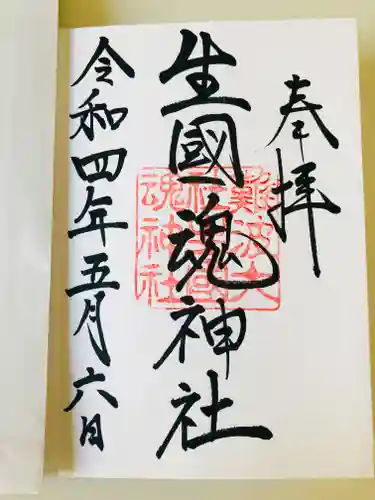 奉拝
生國魂神社
難波大社生國魂神社
令和四年五月六日